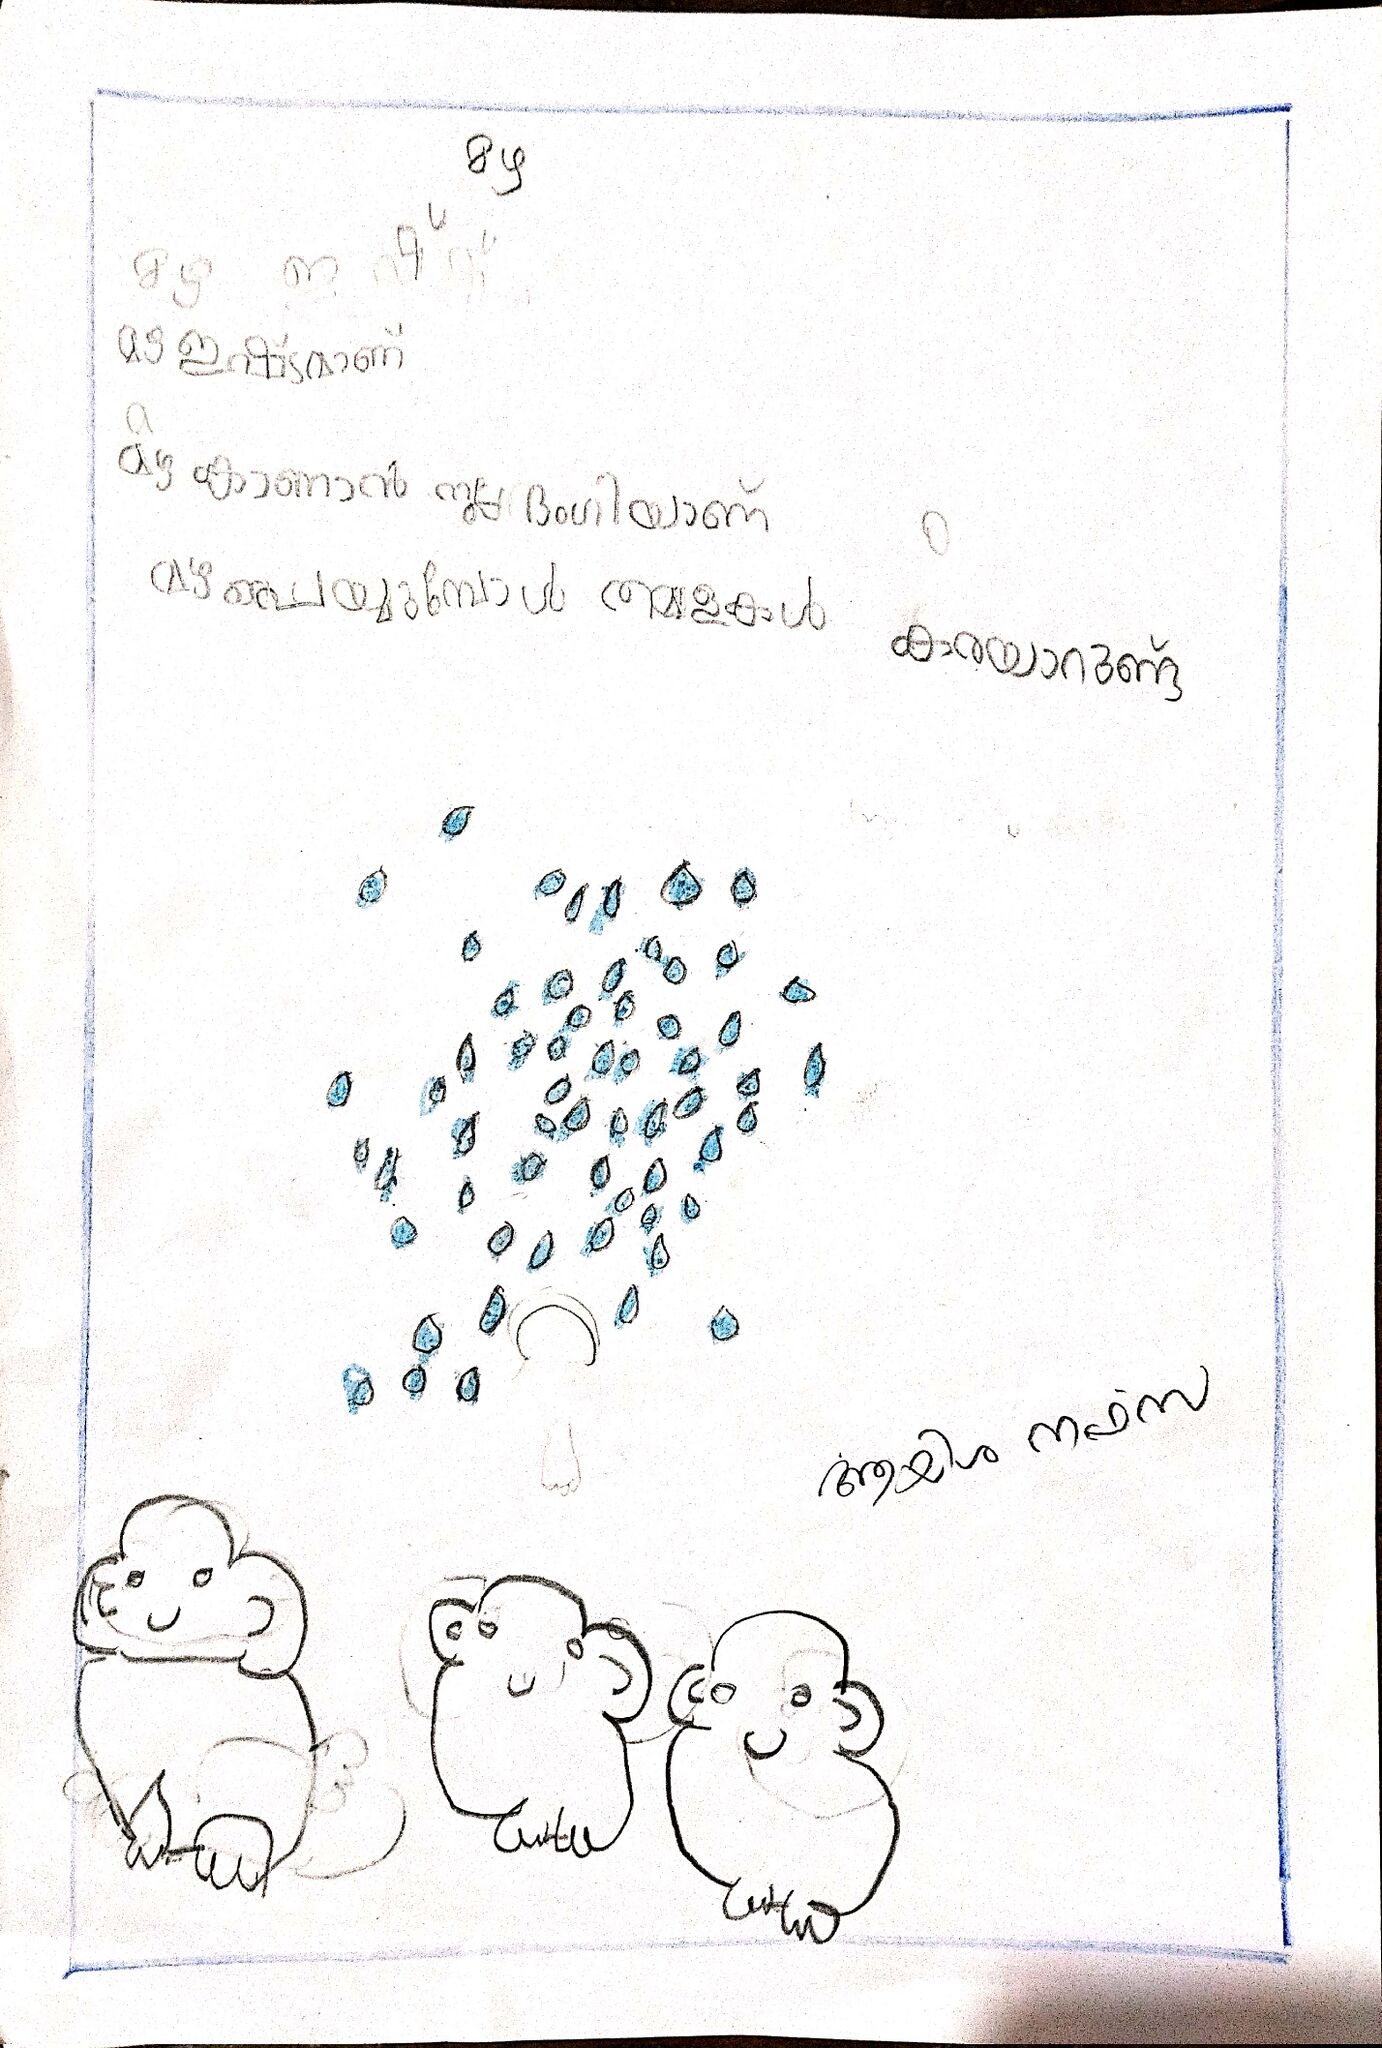 മഴ
മഴ
മഴ ഇഷ്ടമാണ്
മഴ കാണാൻ നല്ല ഭംഗിയാണ്
മഴ പെയ്യുമ്പോൾ തവളകൾ കരയാറുണ്ട്
ആയിശ നഫ്സ